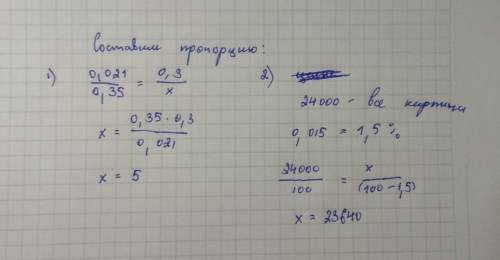 Составим пропорцию:
1) 0,021/0,35 = 0,3/x
x = 0,35·0,3/0,021
x = 5
2)
24000 - все кирпичи
0,015 = 1,5%
24000/100 = x/(100-1,5)
x = 23640